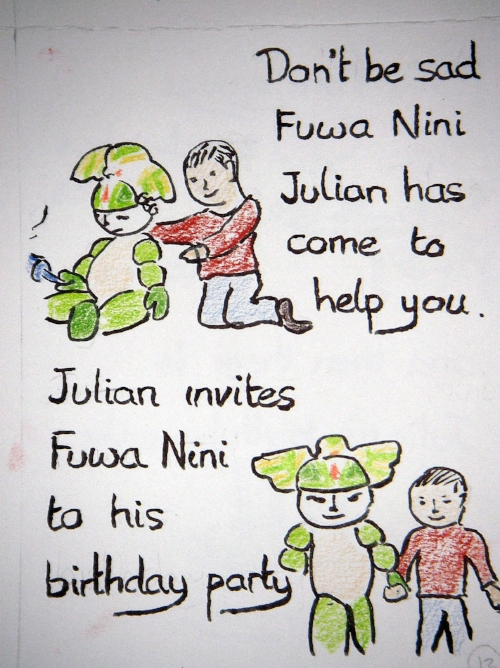 Don't be sad
Fuwa Nini
Julian has
come to
help you.
Julian invites
Fuwa Nini
to his
birthday party